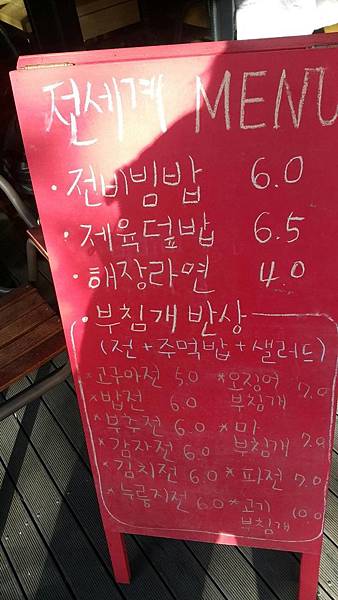 전세계 MENU
· 전비빔밥 6.0
· 제육덮밥 6.5
· 해장라면 4.0
· 부침개 반상
(전+주먹밥+샐러드)
* 고구마전 5.0
* 밥전 6.0
* 부추전 6.0
* 감자전 6.0
* 김치전 6.0
* 누룽지전 6.0
* 오징어 부침개 7.0
* 마 부침개 7.0
* 파전 7.0
* 고기 부침개 10.0